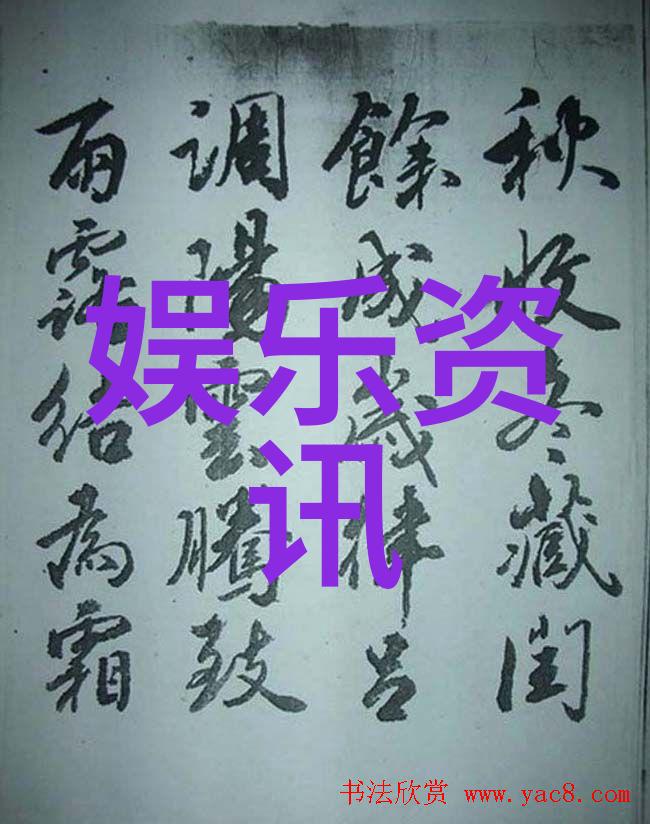 秋收冬藏閏
餘成歲律呂
調陽雲騰致
雨露結為霜
娱乐资
讯
书法欣赏 www.yac8.com